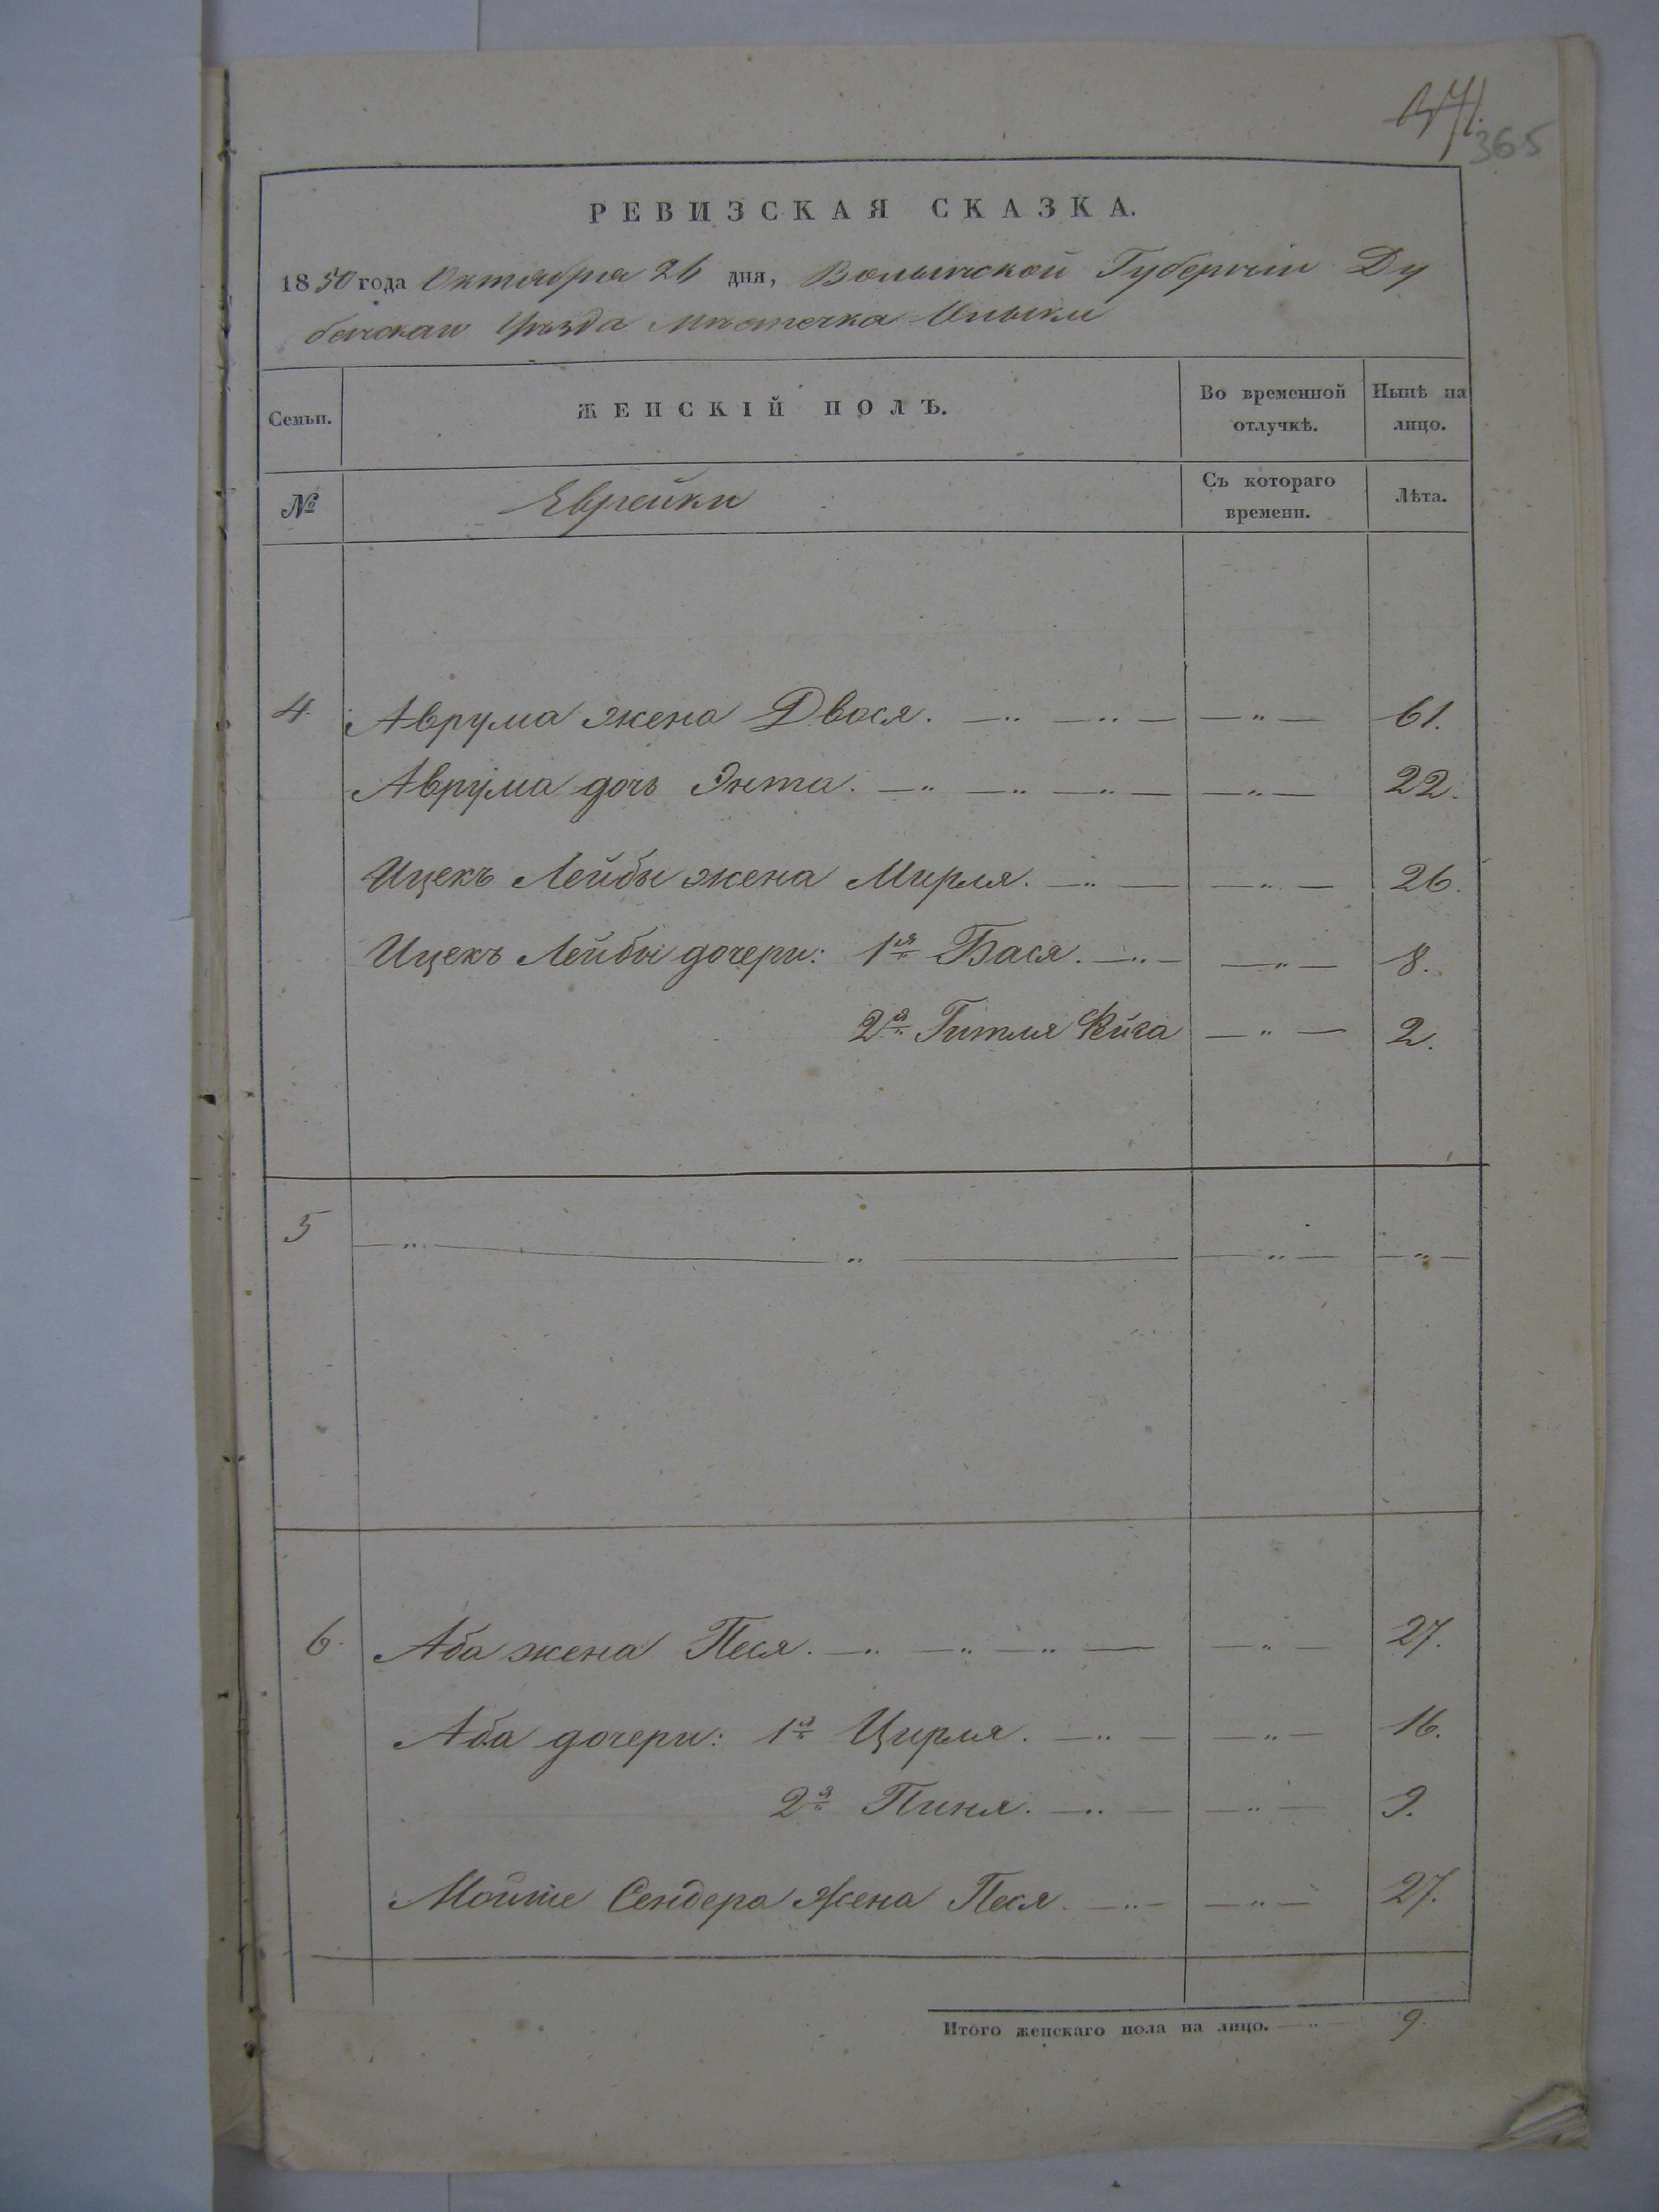 365
РЕВИЗСКАЯ СКАЗКА.
1850 года Октября 26 дня, Волынской Губернiи Ду
бенскаго Уѣзда Мѣстечка Олыки
Семьи. ЖЕНСКIЙ ПОЛЪ. Во временной отлучкѣ. Нынѣ на лицо.
№ Еврейки Съ котораго времени. Лѣта.
4. Аврума жена Двося. — „ — „ — — „ — 61.
Аврума дочь Энта. — „ — „ — „ — — „ — 22.
Ицекъ Лейбы жена Мирля. — „ — — „ — 26.
Ицекъ Лейбы дочери: 1я Бася. — „ — — „ — 8.
2я Гитля — „ — 2.
5 — „ — „ — — „ — — „ —
6. Аба жена Песя. — „ — „ — „ — — „ — 27.
Аба дочери: 1я Цирля. — „ — — „ — 16.
2я Пиня. — „ — — „ — 9.
Мойше Сендера Жена Песя. — „ — — „ — 27.
Итого женскаго пола на лицо. — „ — 9.